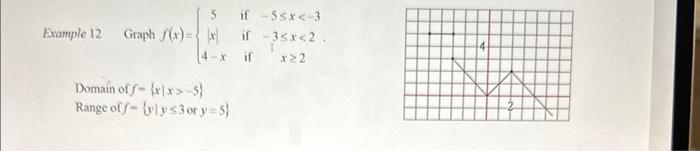 Example 12 Graph f(x)= { 5 if -5≤x<-3
|x| if -3≤x<2 .
4-x if x≥2
Domain of f= {x|x>-5}
Range of f= {y|y≤3 or y=5}
4
2